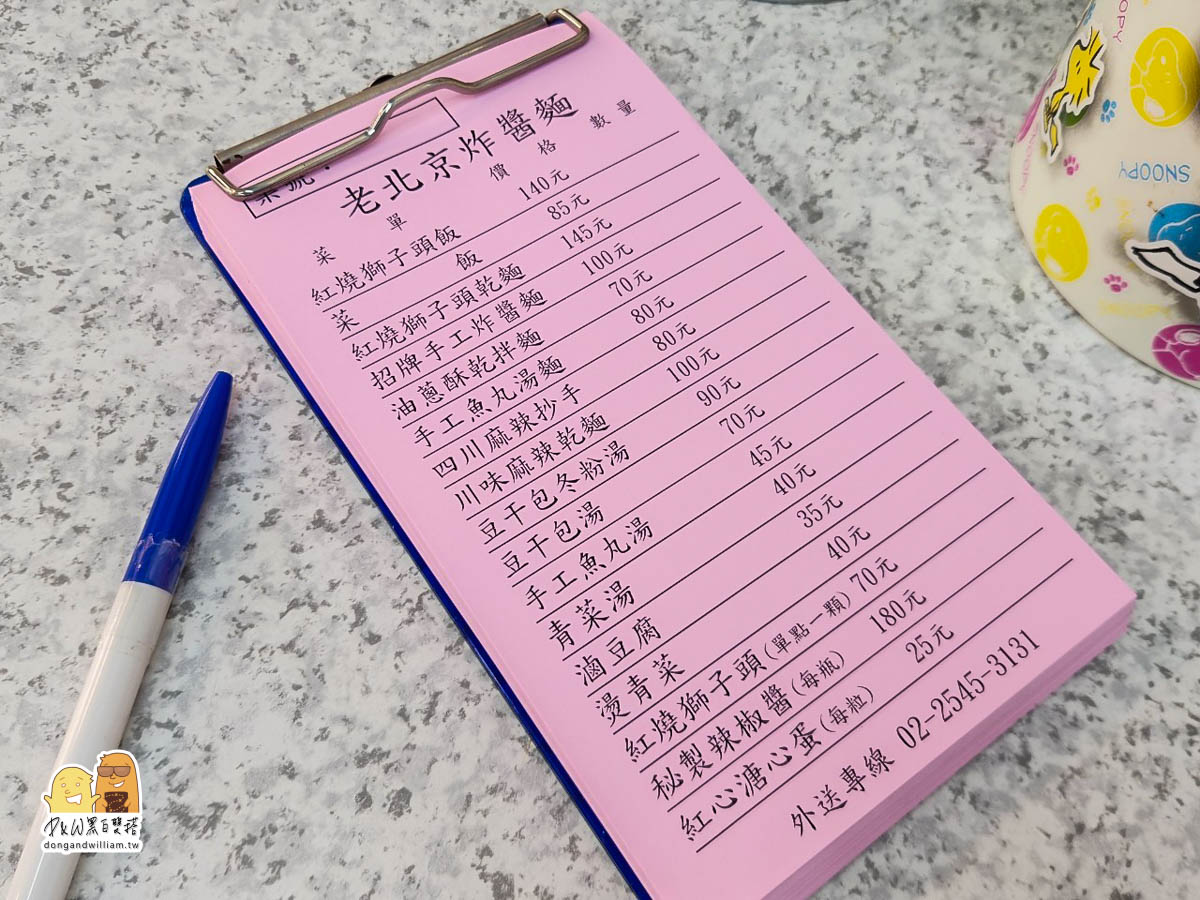 號：
老北京炸醬麵
菜 單 價 格 數 量
紅燒獅子頭飯 140元
菜 飯 85元
紅燒獅子頭乾麵 145元
招牌手工炸醬麵 100元
油蔥酥乾拌麵 70元
手工魚丸湯麵 80元
四川麻辣抄手 80元
川味麻辣乾麵 100元
豆干包冬粉湯 90元
豆干包湯 70元
手工魚丸湯 45元
青菜湯 40元
滷豆腐 35元
燙青菜 40元
紅燒獅子頭(單點一顆) 70元
秘製辣椒醬(每瓶) 180元
紅心溏心蛋(每粒) 25元
外送專線 02-2545-3131
SNOOPY
D&W黑白雙搭
dongandwilliam.tw